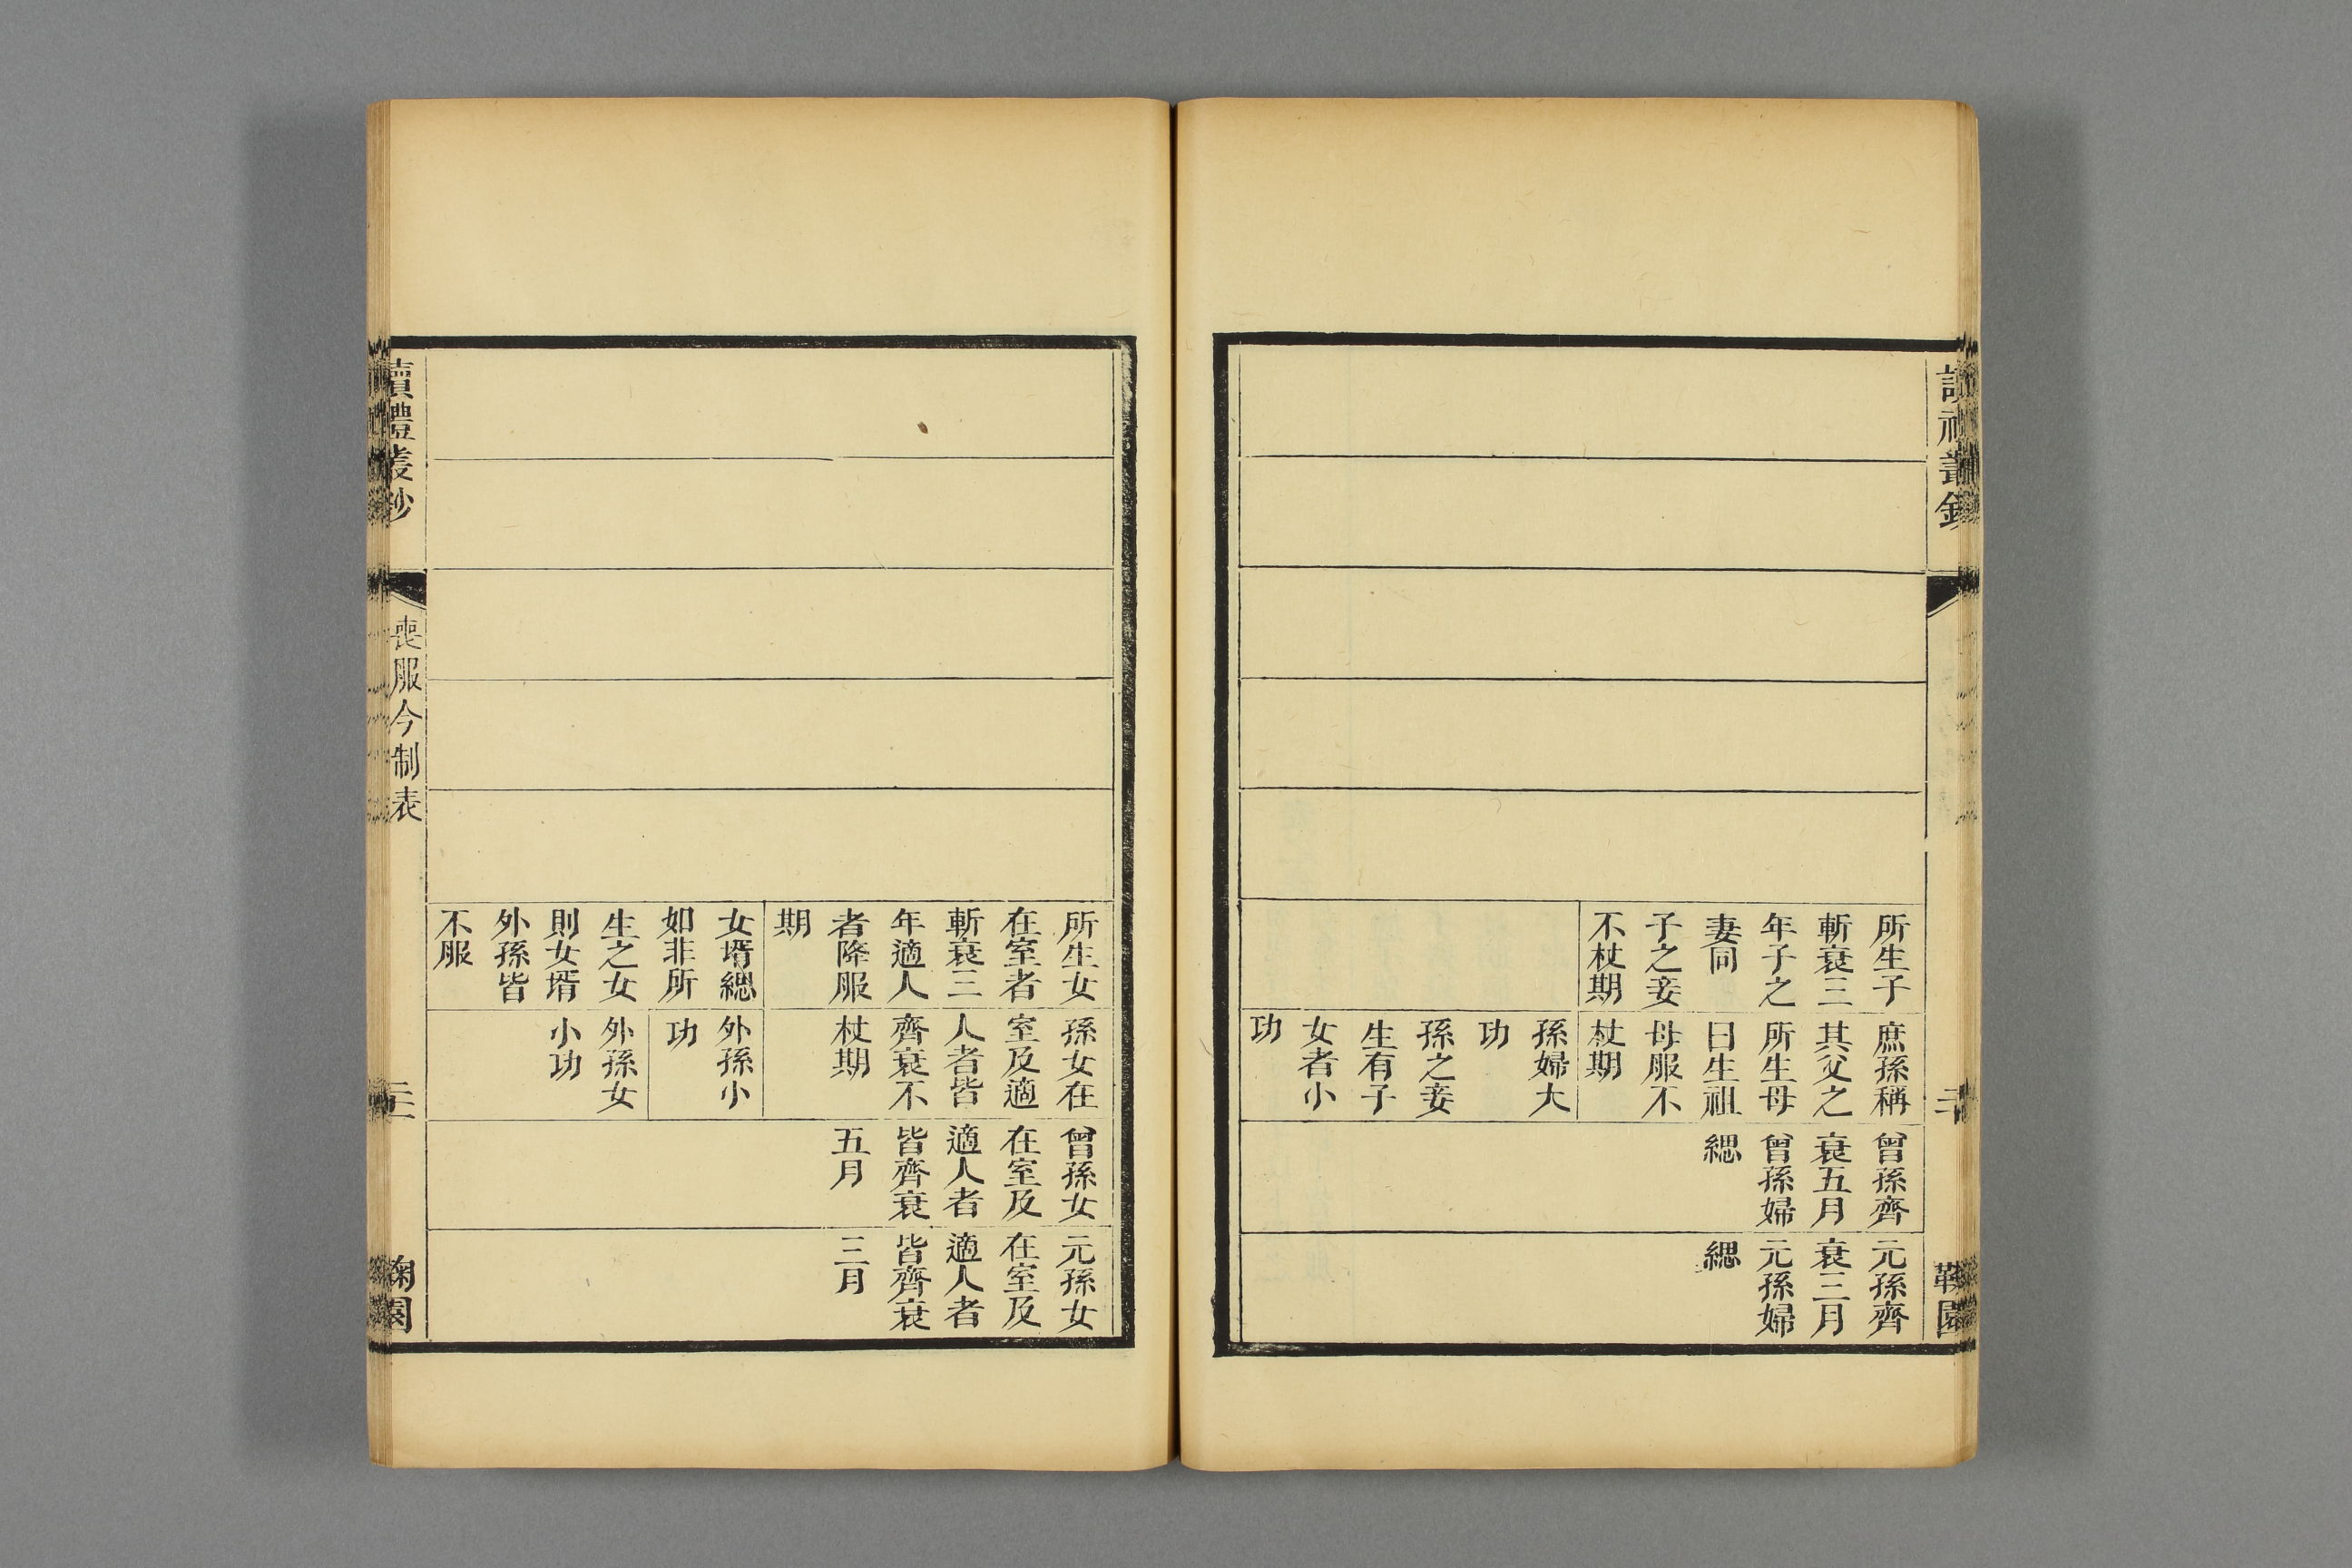 讀禮叢鈔
所生子
斬衰三
年子之
妻同
子之妾
不杖期
庶孫稱
其父之
所生母
曰生祖
母服不
杖期
孫婦大
功
孫之妾
生有子
女者小
功
曾孫齊
衰五月
曾孫婦
緦
元孫齊
衰三月
元孫婦
緦
鞠園
所生女
在室者
斬衰三
年適人
者降服
期
女壻緦
如非所
生之女
則女壻
外孫皆
不服
孫女在
室及適
人者皆
齊衰不
杖期
外孫小
功
外孫女
小功
曾孫女
在室及
適人者
皆齊衰
五月
元孫女
在室及
適人者
皆齊衰
三月
讀禮叢鈔
喪服今制表
鞠園